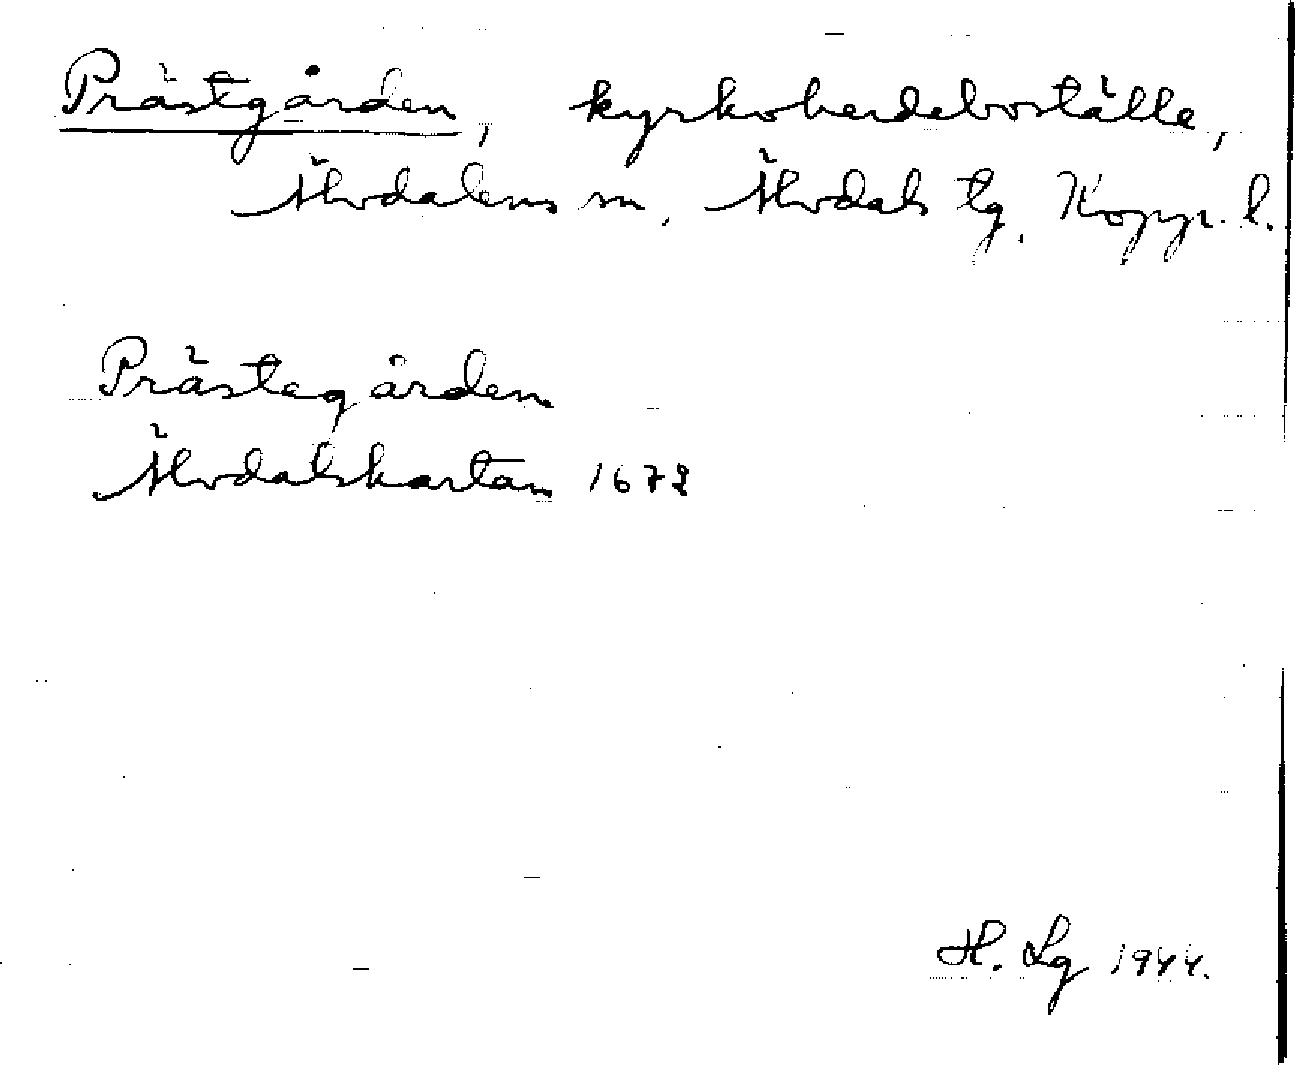 Prästgården, kyrkoherdeboställe,
Älvdalens sn, Älvdals tg, Kopp. l.
Prästegården
Älvdalskartan 1672
H. Lg 1944.